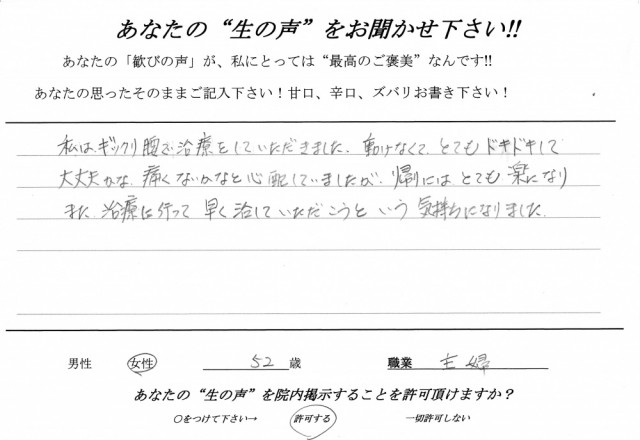 あなたの“生の声”をお聞かせ下さい!!
あなたの「歓びの声」が、私にとっては“最高のご褒美”なんです!!
あなたの思ったそのままご記入下さい！甘口、辛口、ズバリお書き下さい！
私は、ギックリ腰で治療をしていただきました。動けなくて、とてもドキドキして
大丈夫かな、痛くないかなと心配していましたが、帰りにはとても楽になり
また、治療に行って早く治していただこうという気持ちになりました。
男性 女性 52 歳 職業 主婦
あなたの“生の声”を院内掲示することを許可頂けますか？
○をつけて下さい→ 許可する 一切許可しない